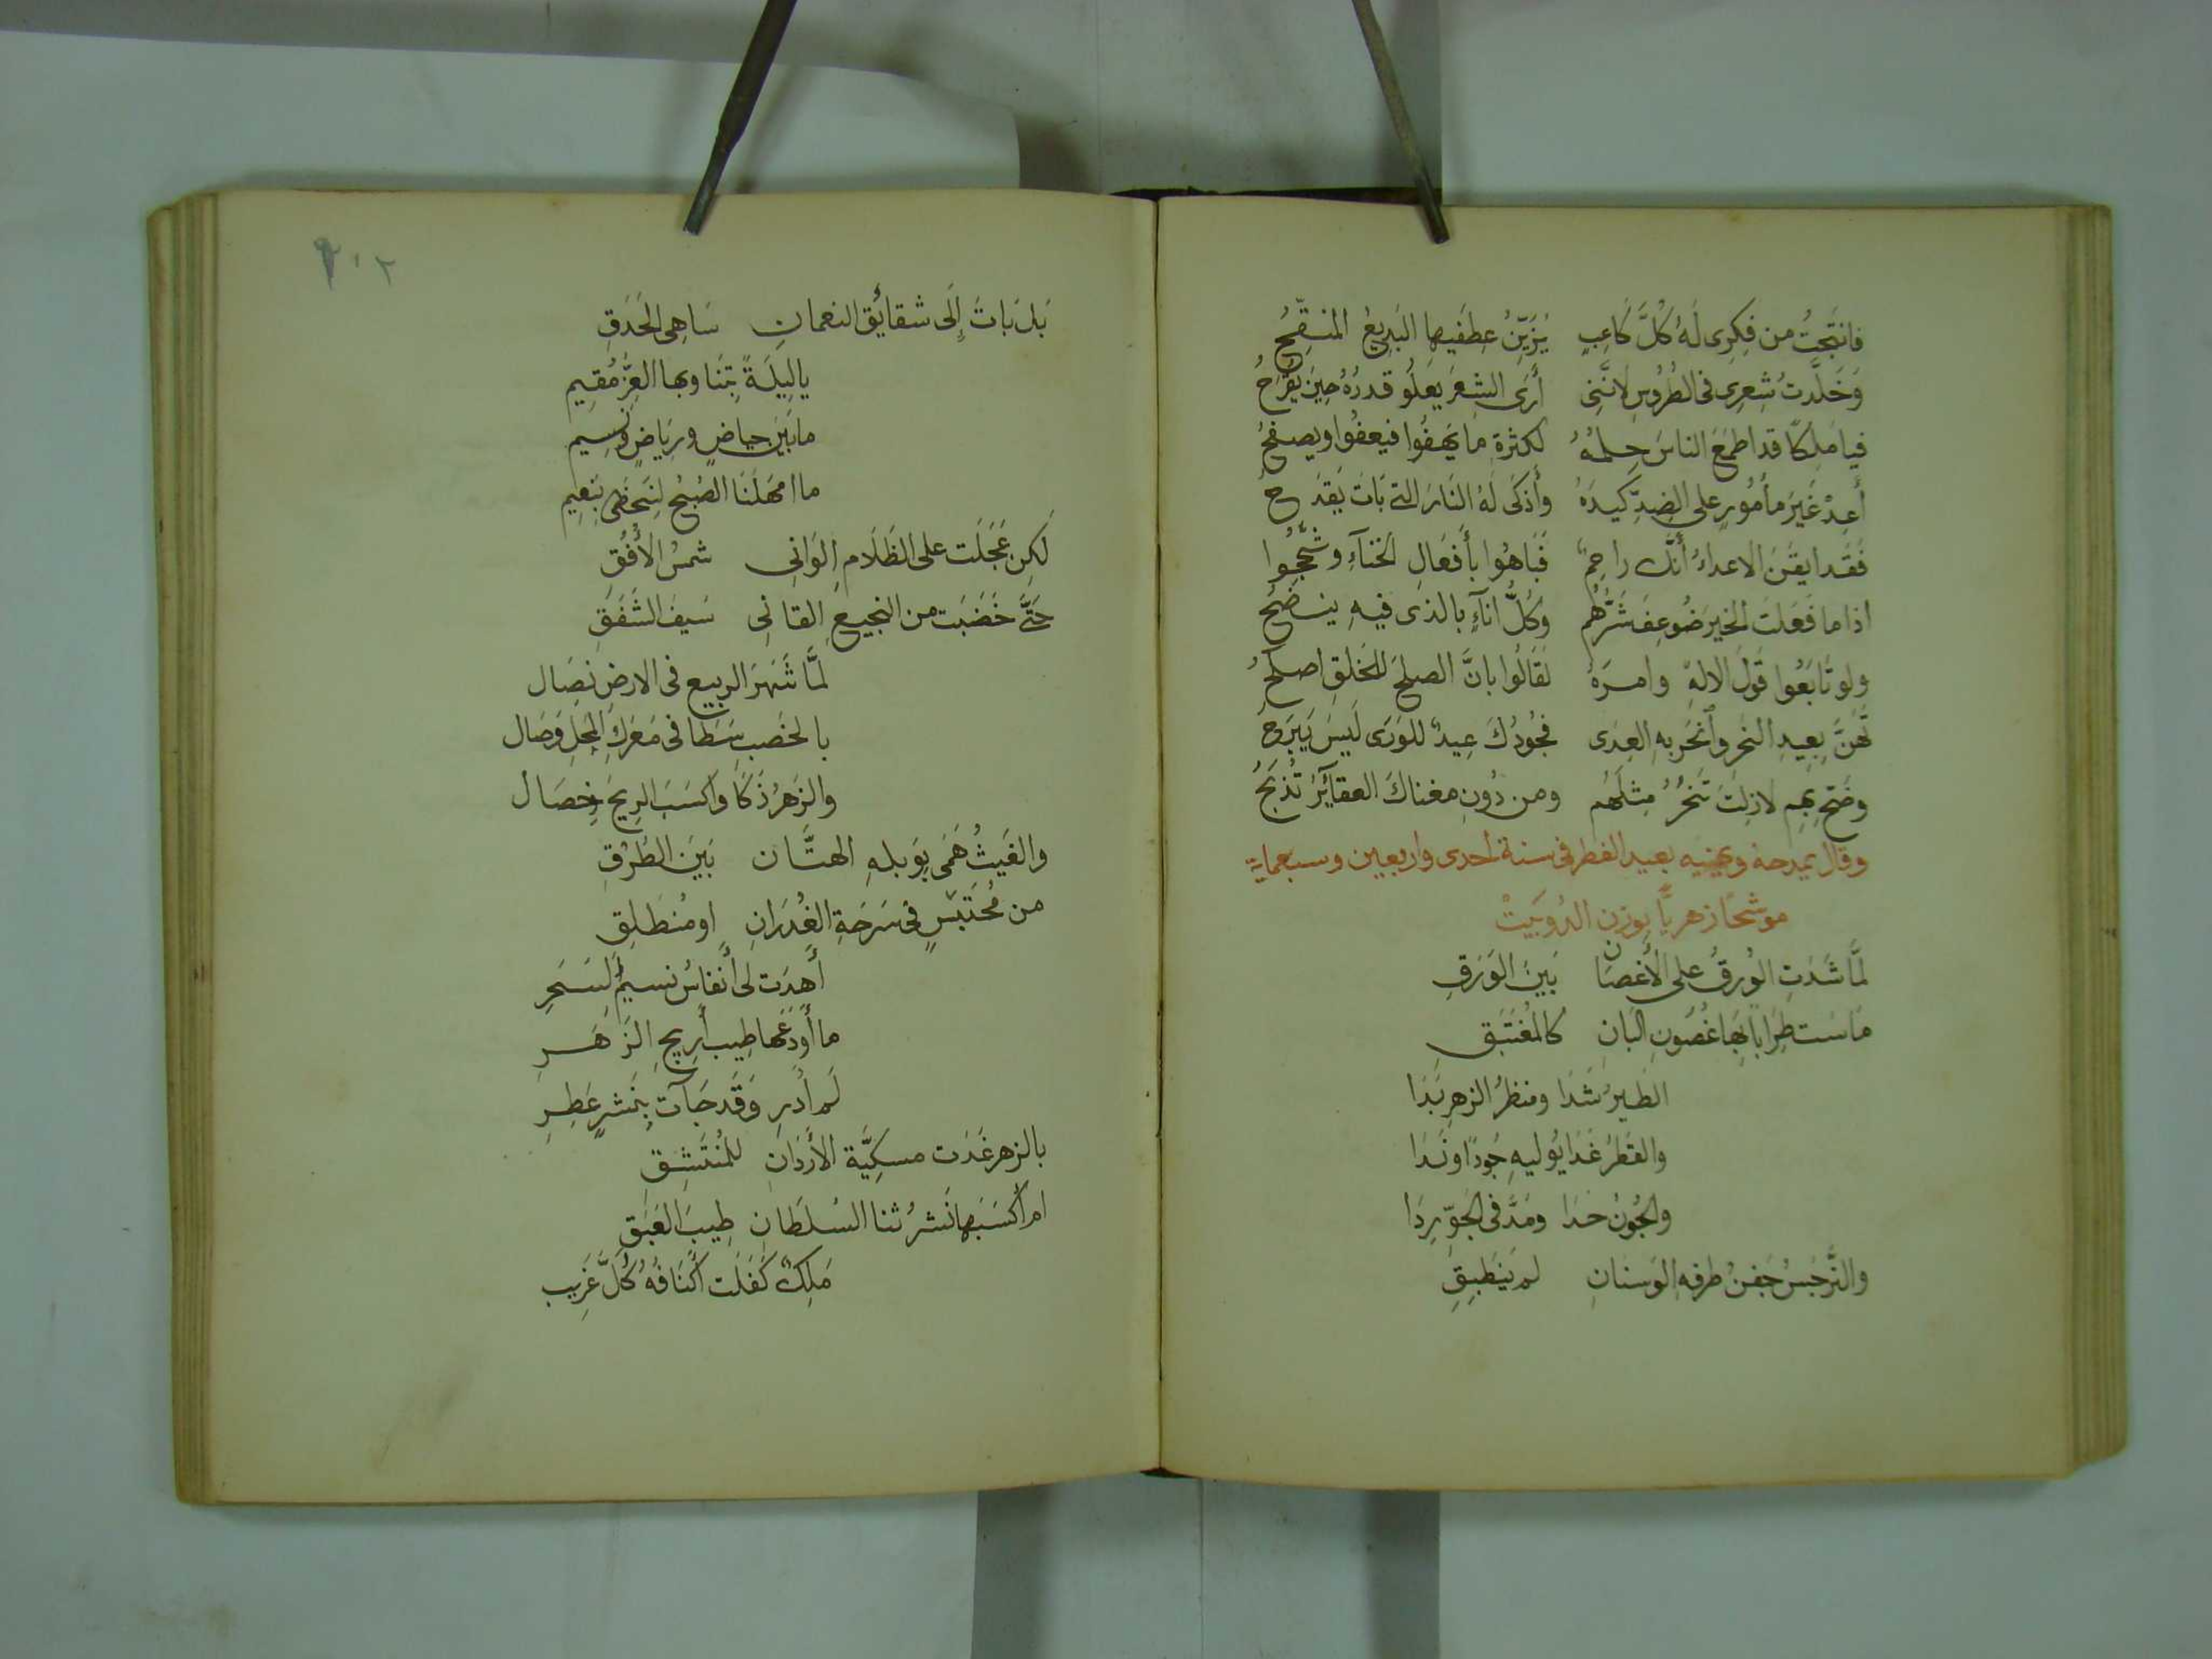 فانتَجتُ من فِكرِى لَهُ كُلَّ كَاعِبٍ يُزَيِّنُ عِطفَيها البَدِيعُ المنقِّحُ
وَخَلَّدتُ شِعرِى فى الطُرُوسِ لانَّنِى أرَى الشِعرَ يَعلُو قدرُهُ حِينَ يُقرَحُ
فيا مَلِكًا قد اطمَعَ الناسَ حِلمُهُ لكثرةِ ما يَهفُوا فيعفُوا ويصفحُ
أَعِدْ غَيرَ مأمُورٍ على الضِدِّ كَيدَهُ وأَذكَى لَهُ النَارَ التى بَاتَ يَقدَحُ
فَقَد ايقَنَ الاعداءُ أَنَّكَ راحِمٌ فَبَاهُوا بأَفعَالِ الخنآءِ و
اذا ما فَعَلتَ الخيرَ ضُوعِفَ شَرُّهُم وكُلُّ انآءٍ بالذى فيهِ ينضَحُ
ولو تَابَعُوا قَولَ الالهِ وامرَهُ لَقَالُوا بانَّ الصلحَ للخَلقِ اصلَحُ
تَهَنَّ بِعِيدِ النَحرِ وأنحَر بهِ العِدَى فجُودُكَ عِيدٌ للوَرَى لَيسَ يَبرَحُ
وضَحِّ بِهِم لازِلتَ تَنحَرُ مِثلَهُم ومن دُونِ مغناكَ العقائِرُ تُذبَحُ
وقال يمدحه ويهنيه بعيد الفطر فى سنة احدى واربعين وسبعماية
موشحًا زهريًّا بوزن الدُوبَيتْ
لمَّا شَدَتِ الوُرقُ على الأَغصَان بَينَ الوَرَقِ
مَاسَت طَرَبًا بِهَا غُصُونِ البَانِ كالمُغتَبِقِ
الطَيرُ شَدَا ومنظرُ الزهرِ بَدَا
والقَطرُ غَدَا يُوليهِ جُودًا ونَدَا
والجُونُ حَدَا ومَدَّ فى الجَوِّ رِدَا
والنَّرجَسُ جَفنُ طرفهِ الوَسنانِ لم يَنطَبِقِ
٢٠٢
بَل بَاتَ إِلَى شقائِقِ النعمانِ سَاهِى الحَدَقِ
يالَيلَةً بِتنَا وبها العِزُّ مُقِيم
مابَينَ حياضٍ ورِيَاضٍ ونَسِيم
ما امهَلَنَا الصُبحُ لِنَحظَى بِنَعِيم
لَكِن عَجَلَت على الظَلَامِ الوَانِى شمسُ الأُفُقِ
حَتَّى خَضَبَت من النجيعِ القانِى سَيفَ الشَفَقِ
لمَّا شَهَرَ الربيع فى الارضِ نِصَال
بالخَصبِ سَطَا فى مَعرَكِ المَحلِ وَصَال
والزَهرُ ذَكَا وأَكسَبَ الرِيحَ خِصَال
والغَيثُ هَمَى بِوَبلهِ الهتَّان بَينَ الطُرُقِ
من مُحتَبَسٍ فى سَرحَةِ الغُدرَانِ او مُنطَلِقِ
أَهدَت لى أَنفاسُ نسيمِ السَحَرِ
ما أَودَعَها طِيب أَرِيجِ الزَهَرِ
لَم ادرِ وَقَد جَآت بِنَشرٍ عَطِرِ
بالزهر غَدَت مسكيَّة الأَردَانِ للمُنتَشِقِ
ام أَكسَبَها نَشرُ ثنا السُلطَانِ طِيبَ العَبَقِ
مَلِكٌ كَفَلَت أكنَافُهُ كُلَّ غَرِيب